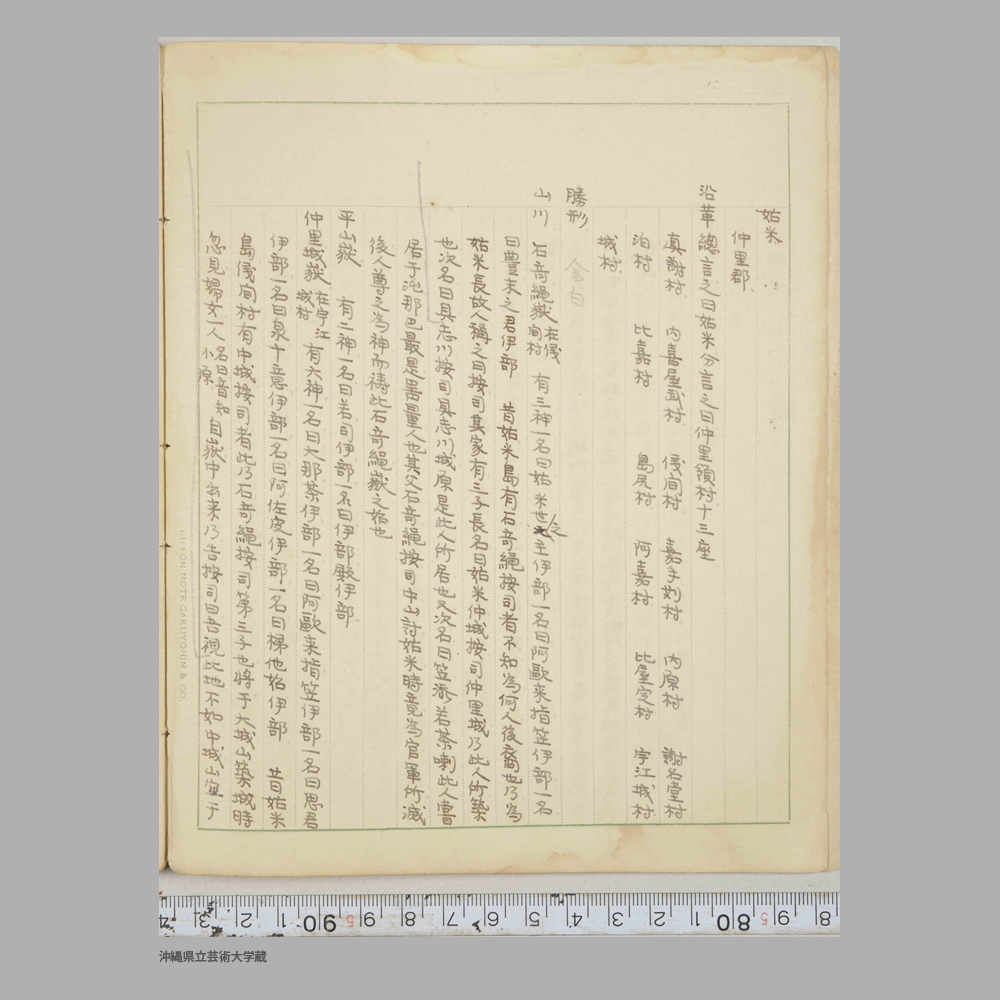 姑米
仲里郡
沿革 總言之曰姑米分言之曰仲里領村十三座
真謝村 内喜屋武村 儀间村 嘉手苅村 内原村 謝名堂村
泊村 比嘉村 島尻村 阿嘉村 比屋定村 宇江城村
城村
勝形
山川 石竒繩嶽 在儀间村 有三神一名曰姑米世之主伊部一名曰阿歐来指笠伊部一名
曰豊末之君伊部 昔姑米島有石竒繩按司者不知為何人後裔也乃為
姑米長故人稱之曰按司其家有三子長名曰姑米仲城按司仲里城乃此人所築
也次名曰具志川按司具志川城原是此人所居也又次名曰笠添若茶喇此人嘗
居于兇那巴最是噐量人也其父石竒繩按司中山討姑米時竟為官軍所滅
後人尊之為神而禱此石竒繩嶽之始也
平山嶽 有二神一名曰若司伊部一名曰伊部殿伊部
仲里城嶽 在宇江城村 有六神一名曰大那茶伊部一名曰阿歐来指笠伊部一名曰思君
伊部一名曰泉十意伊部一名曰阿佐定伊部一名曰梯他始伊部 昔姑米
島儀间村有中城按司者此乃石竒繩按司第三子也將于大城山築城時
忽見婦女一人 名曰音知小原 自嶽中出来乃告按司曰吾視此地不如中城山宜于
NI-HON NOTE GAKUYOHIN & CO.
8 9 5 80 1 2 3 4 5 6 7 8 9 5 90 1 2 3 4
沖縄県立芸術大学蔵